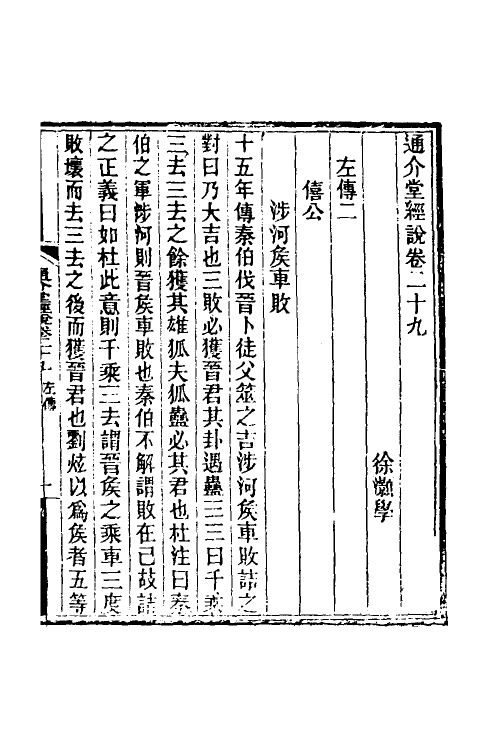 通介堂經說卷二十九
徐灝學
左傳二
僖公
涉河矦車敗
十五年傳秦伯伐晉卜徒父筮之吉涉河矦車敗詰之
對曰乃大吉也三敗必獲晉君其卦遇蠱三三曰千乘
三去三去之餘獲其雄狐夫狐蠱必其君也杜注曰秦
伯之軍涉河則晉矦車敗也秦伯不解謂敗在己故詰
之正義曰如杜此意則千乘三去謂晉矦之乘車三度
敗壞而去三去之後而獲晉君也劉炫以為矦者五等
通介堂經說卷二十九 左傳 一